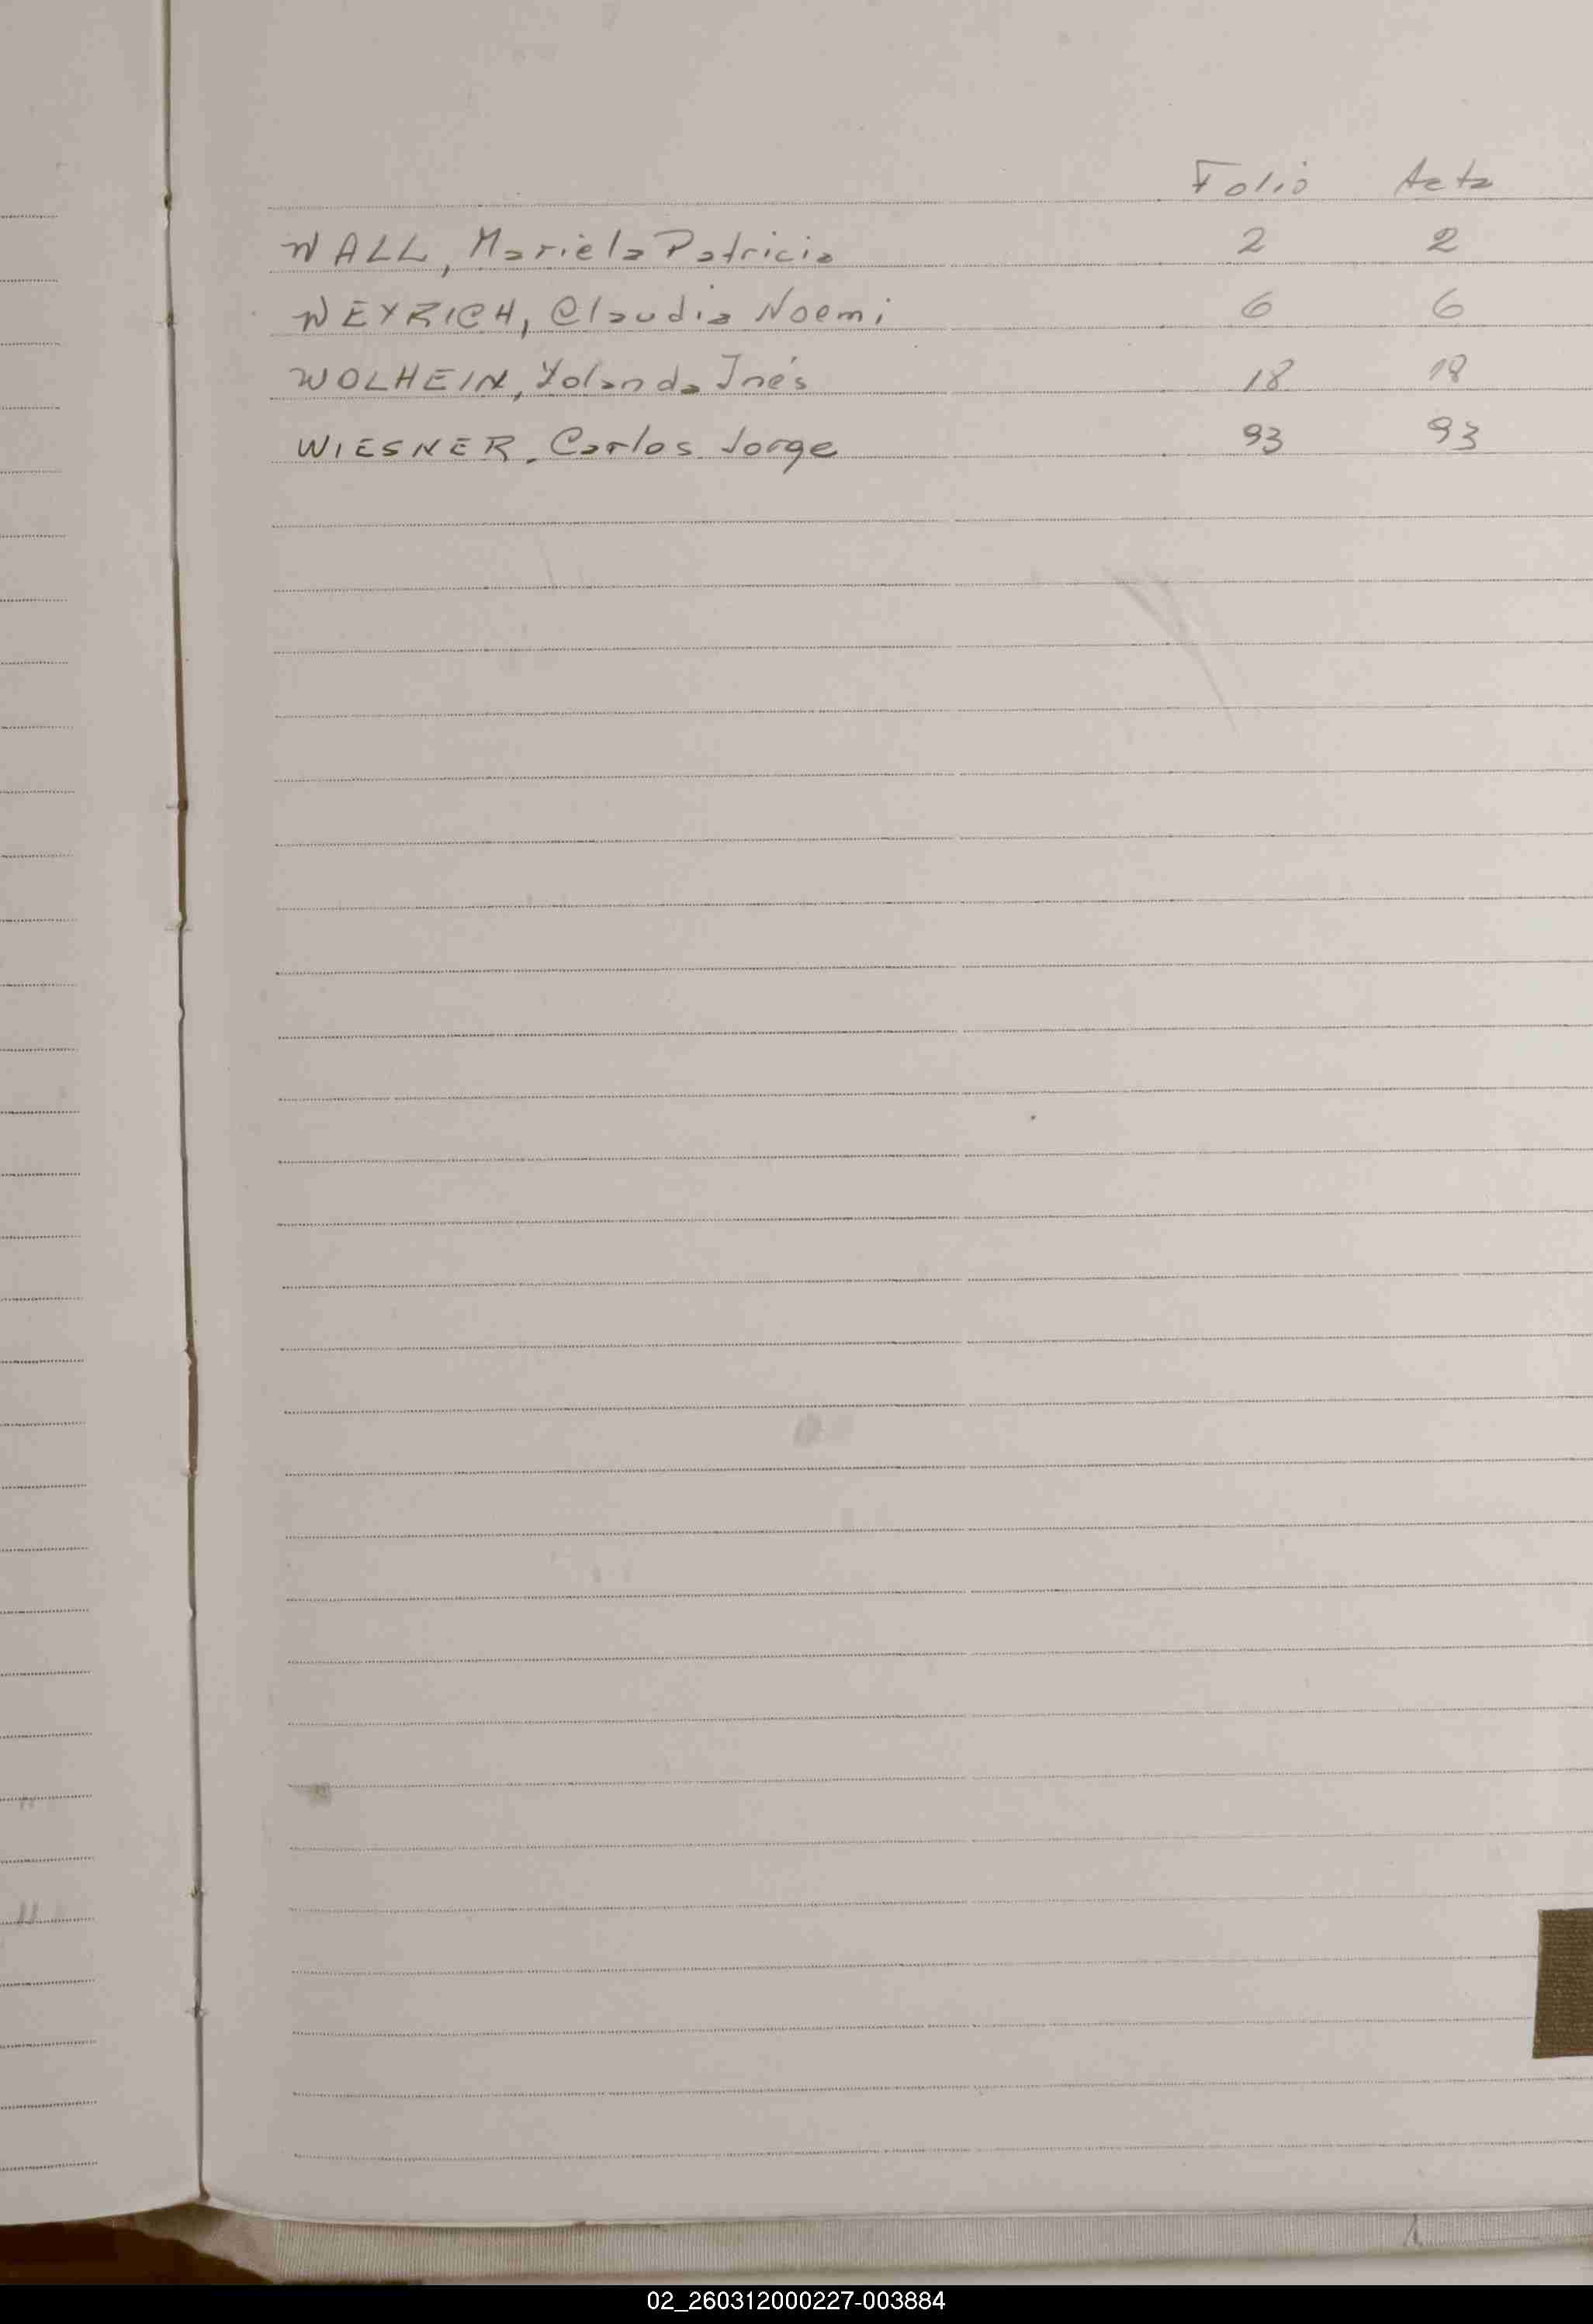 Folio Acta
WALL, Mariela Patricia 2 2
WEYRICH, Claudia Noemi 6 6
WOLHEIN, Yolanda Inés 18 18
WIESNER, Carlos Jorge 93 93
02_260312000227-003884